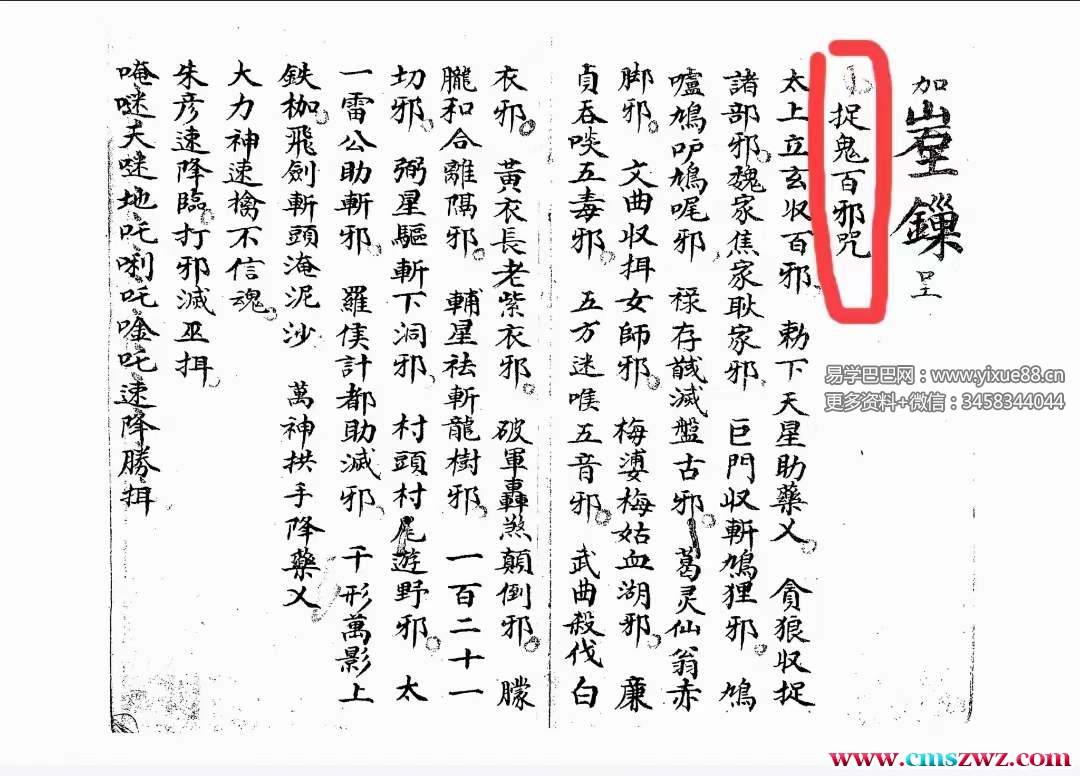 加
鏁
呈
捉鬼百邪咒
太上立玄収百邪 勅下天星助藥乂 貪狼収捉
諸部邪魏家焦家耿家邪 巨門収斬鳩狸邪 鳩
嚧鳩吖鳩呢邪 祿存馘滅盤古邪 葛灵仙翁赤
脚邪 文曲収挕女師邪 梅婆梅姑血湖邪 廉
貞吞啖五毒邪 五方迷喉五音邪 武曲殺伐白
衣邪 黃衣長老紫衣邪 破軍轟煞顛倒邪 朦
朧和合離隔邪 輔星祛斬龍樹邪 一百二十一
切邪 弼星驅斬下洞邪 村頭村尾遊野邪 太
一雷公助斬邪 羅侯計都助滅邪 千形萬影上
鉄枷飛劍斬頭淹泥沙 萬神拱手降藥乂
大力神速擒不信魂
朱彥速降臨打邪滅巫挕
唵咪天咪地吒唎吒唫吒速降勝挕
易学巴巴网：www.yixue88.cn
更多资料+微信：3458344044
www.cmszwz.com